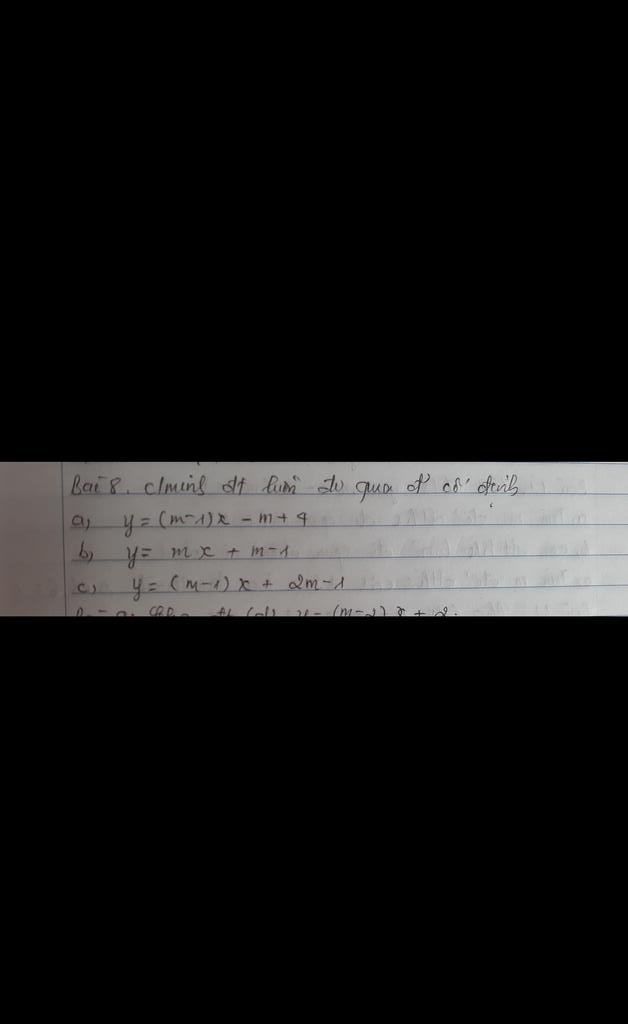 Bài 8. c/minh đt luôn đi qua đ' cố định
a, y = (m-1)x - m + 4
b, y = mx + m - 1
c, y = (m-1)x + 2m - 1
y = (m-2)x + 2.